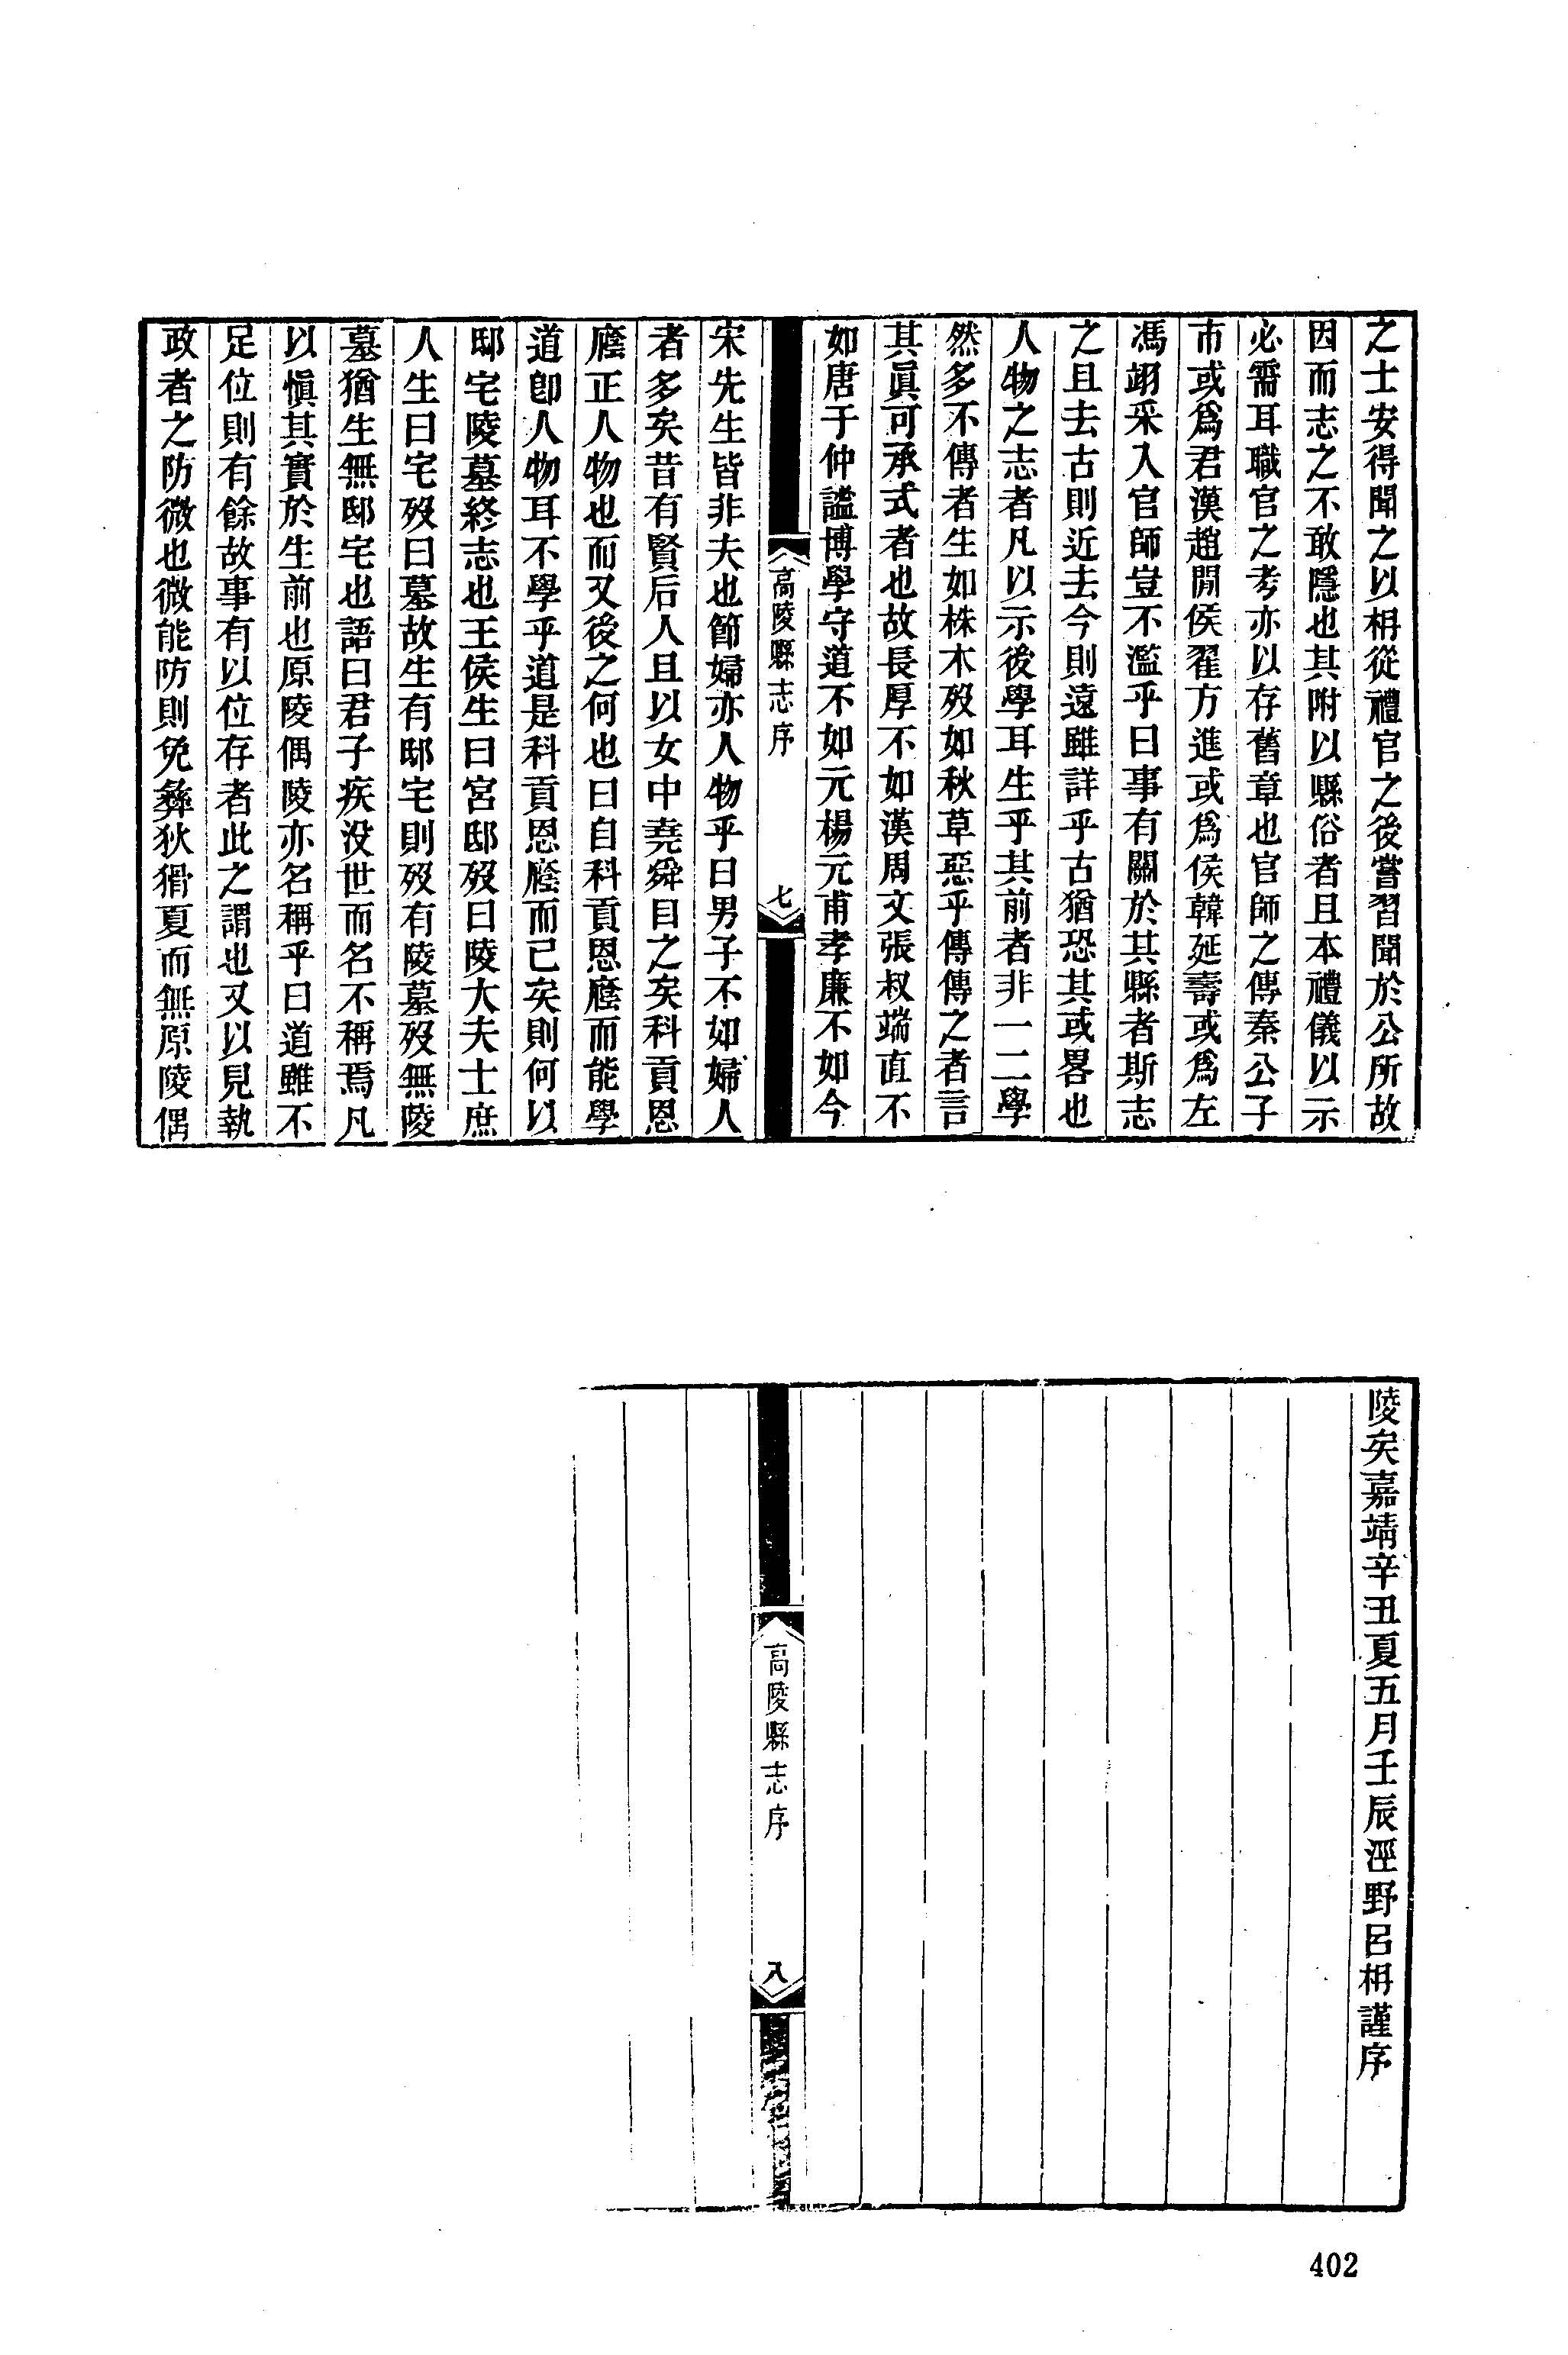 之士安得聞之以枏從禮官之後嘗習聞於公所故
因而志之不敢隱也其附以縣俗者且本禮儀以示
必需耳職官之考亦以存舊章也官師之傳秦公子
市或爲君漢趙閒侯翟方進或爲侯韓延壽或爲左
馮翊采入官師豈不濫乎曰事有關於其縣者斯志
之且去古則近去今則遠雖詳乎古猶恐其或畧也
人物之志者凡以示後學耳生乎其前者非一二學
然多不傳者生如株木歿如秋草惡乎傳傳之者言
其眞可承式者也故長厚不如漢周文張叔端直不
如唐于仲謐博學守道不如元楊元甫孝廉不如今
高陵縣志序
七
宋先生皆非夫也節婦亦人物乎曰男子不如婦人
者多矣昔有賢后人且以女中堯舜目之矣科貢恩
廕正人物也而又後之何也曰自科貢恩廕而能學
道卽人物耳不學乎道是科貢恩廕而已矣則何以
邸宅陵墓終志也王侯生曰宮邸歿曰陵大夫士庶
人生曰宅歿曰墓故生有邸宅則歿有陵墓歿無陵
墓猶生無邸宅也語曰君子疾没世而名不稱焉凡
以愼其實於生前也原陵偶陵亦名稱乎曰道雖不
足位則有餘故事有以位存者此之謂也又以見執
政者之防微也微能防則免彝狄猾夏而無原陵偶
陵矣嘉靖辛丑夏五月壬辰涇野呂枏謹序
高陵縣志序
八
402